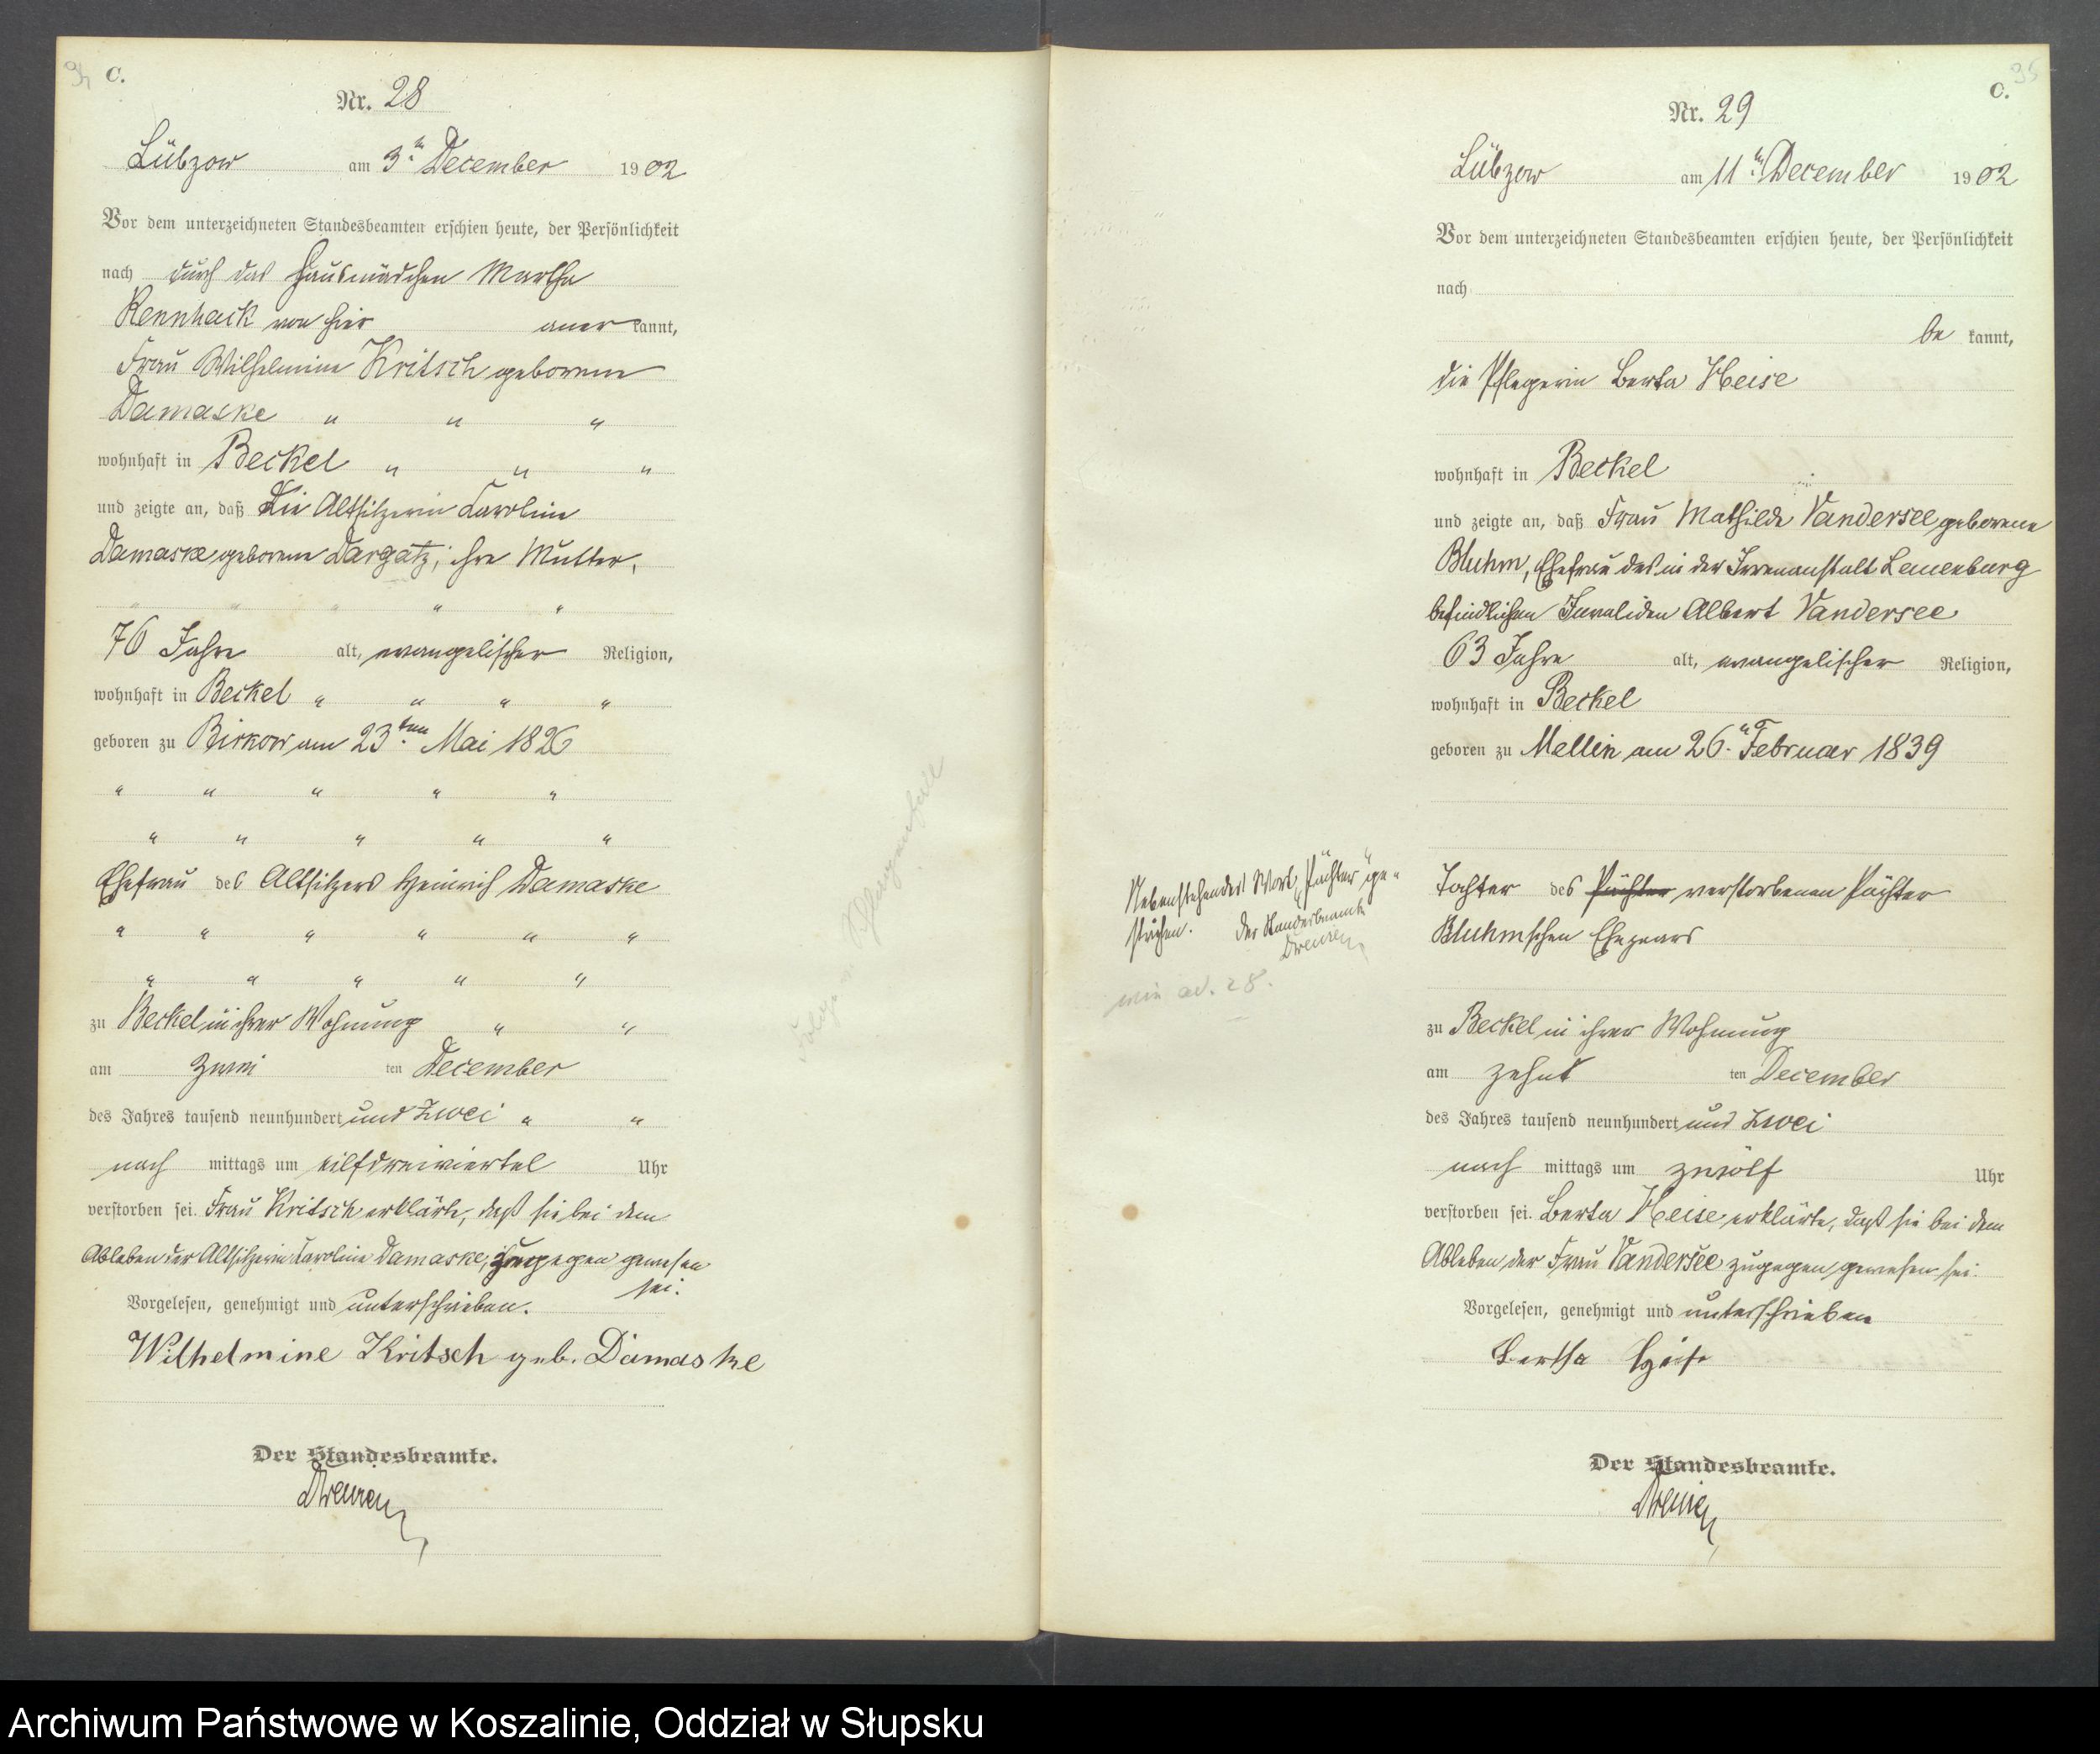 94 C.
Nr. 28
Lübzow am 3. December 1902
Vor dem unterzeichneten Standesbeamten erschien heute, der Persönlichkeit
nach durch das Hausmädchen Martha
Rennhack von hier aner kannt,
Frau Wilhelmine Kritsch geborene
Damaske " " "
wohnhaft in Beckel " " "
und zeigte an, daß die Altsitzerin Karoline
Damaske geborene Dargatz, ihre Mutter,
" " " " "
76 Jahre alt, evangelischer Religion,
wohnhaft in Beckel " " " "
geboren zu Birkow am 23ten Mai 1826
" " " " "
" " " " "
Ehefrau des Altsitzers Heinrich Damaske
" " " " " "
" " " " "
zu Beckel in ihrer Wohnung " "
am zwei ten December
des Jahres tausend neunhundert und zwei " "
nach mittags um eilfdreiviertel Uhr
verstorben sei. Frau Kritsch erklärte, daß sie bei dem
Ableben der Altsitzerin Karoline Damaske, zugegen gewesen
sei.
Vorgelesen, genehmigt und unterschrieben.
Wilhelmine Kritsch geb. Damaske
Der Standesbeamte.
95
C.
Nr. 29
Lübzow am 11. December 1902
Vor dem unterzeichneten Standesbeamten erschien heute, der Persönlichkeit
nach
be kannt,
die Pflegerin Berta Heise
wohnhaft in Beckel
und zeigte an, daß Frau Mathilde Vandersee geborene
Bluhm, Ehefrau des in der Irrenanstalt Lauenburg
befindlichen Invaliden Albert Vandersee
63 Jahre alt, evangelischer Religion,
wohnhaft in Beckel
geboren zu Mellin am 26. Februar 1839
Nebenstehendes Wort "Pächter" ge-
strichen. Der Standesbeamte
Tochter des Pächter verstorbenen Pächter
Bluhmschen Ehepaars
ad. 28.
zu Beckel in ihrer Wohnung
am zehn ten December
des Jahres tausend neunhundert und zwei
nach mittags um zwölf Uhr
verstorben sei. Berta Heise erklärte, daß sie bei dem
Ableben der Frau Vandersee zugegen gewesen sei.
Vorgelesen, genehmigt und unterschrieben
Bertha Heise
Der Standesbeamte.
Archiwum Państwowe w Koszalinie, Oddział w Słupsku